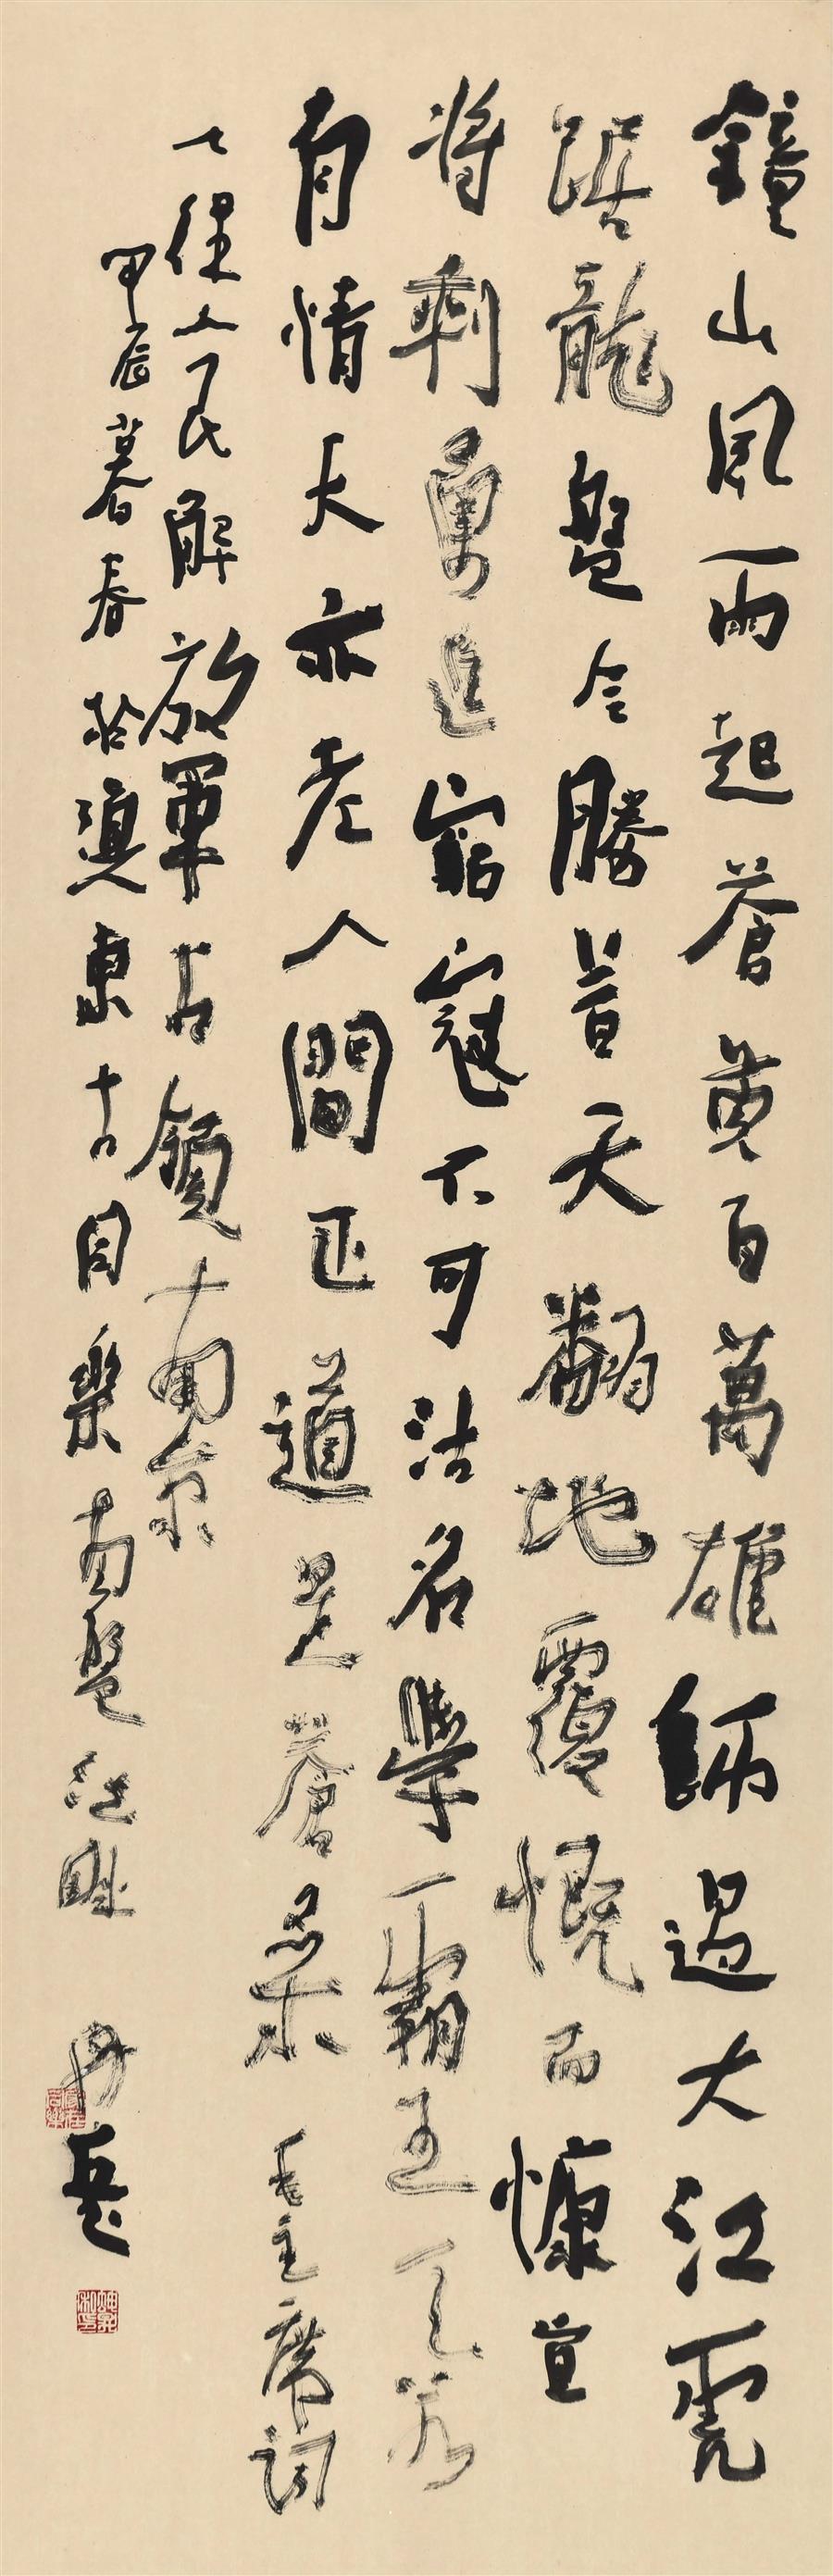 鐘山風雨起蒼黄百萬雄師過大江虎
踞龍盤今勝昔天翻地覆慨而慷宜
将剩勇追窮寇不可沽名學霸王天若
有情天亦老人間正道是蒼桑毛主席詞
七律人民解放軍占領南京
甲辰暮春於滇東古同樂南盤江畔